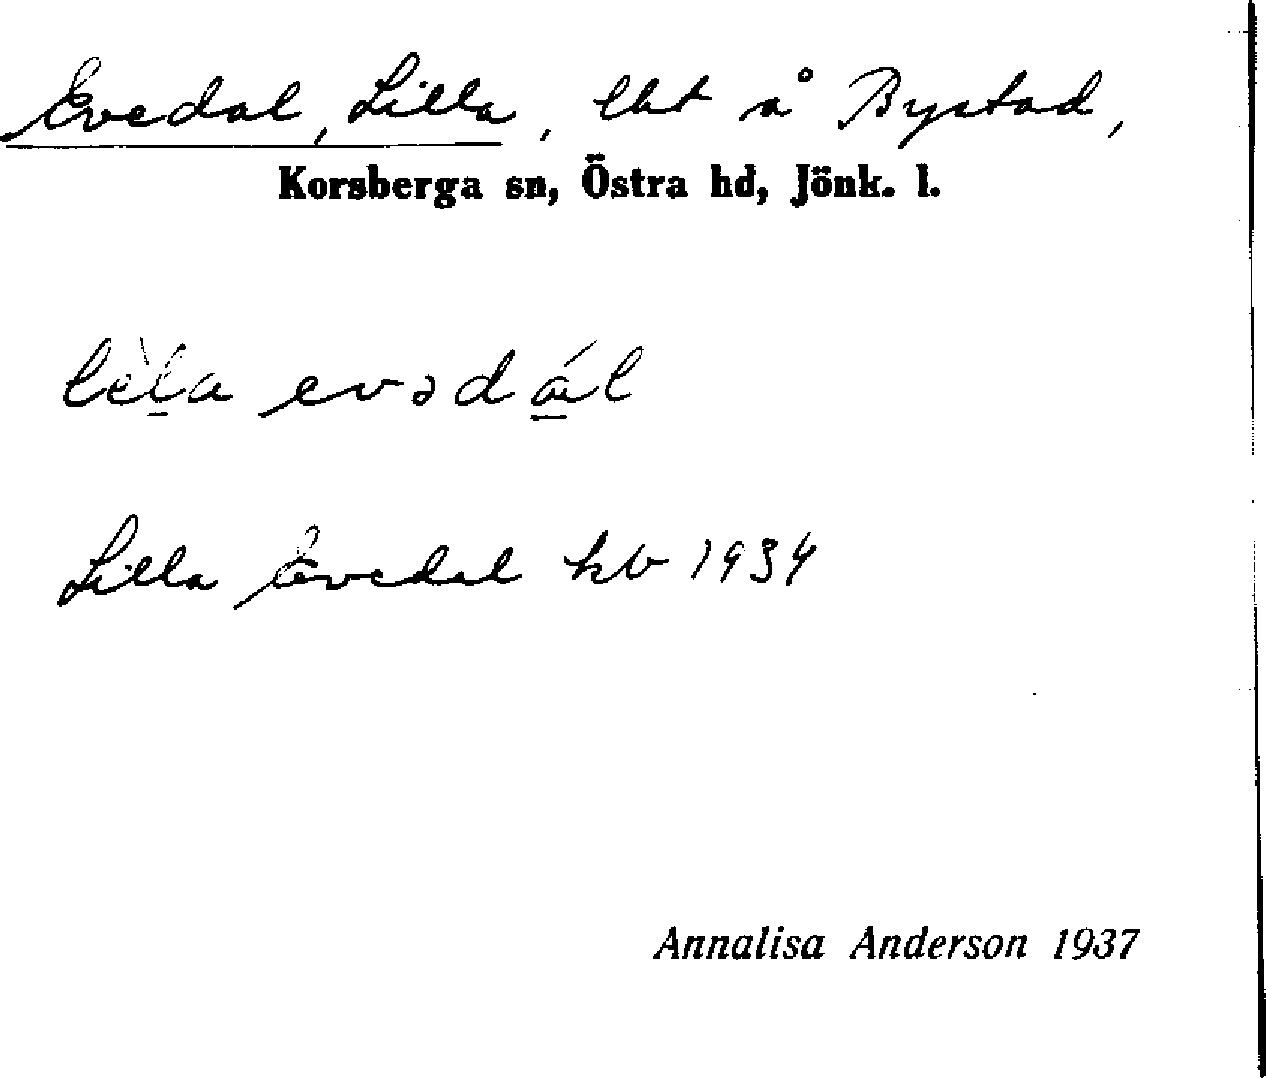 Evedal, Lilla, lht å Bystad,
Korsberga sn, Östra hd, Jönk. l.
lèl̠a evədá̠l
Lilla Evedal kb 1934
Annalisa Anderson 1937